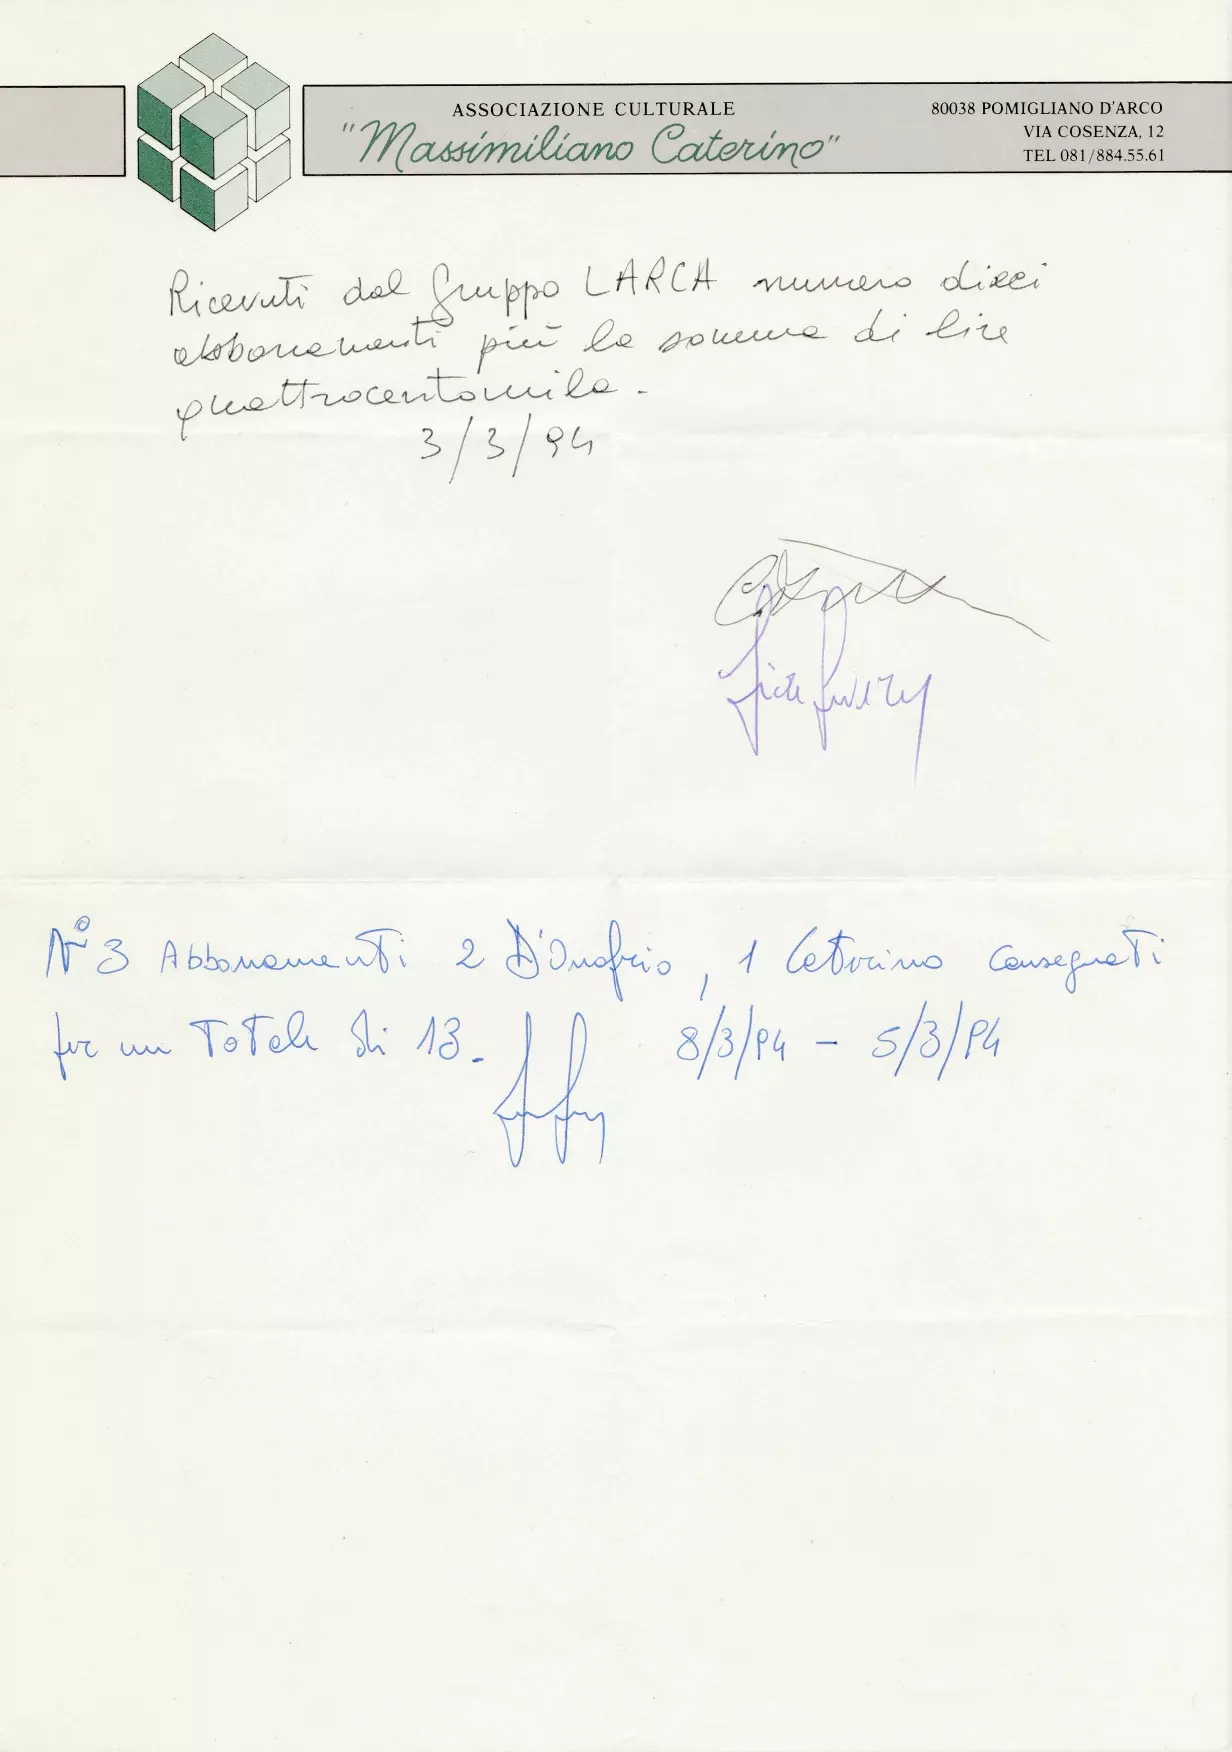 ASSOCIAZIONE CULTURALE
"Massimiliano Caterino"
80038 POMIGLIANO D'ARCO
VIA COSENZA, 12
TEL 081/884.55.61
Ricevuti dal Gruppo LARCA numero dieci
abbonamenti più la somma di lire
quattrocentomila.
3/3/94
N° 3 Abbonamenti 2 D'Onofrio, 1 Caterino Consegnati
per un Totale di 13.
8/3/94 - 5/3/94